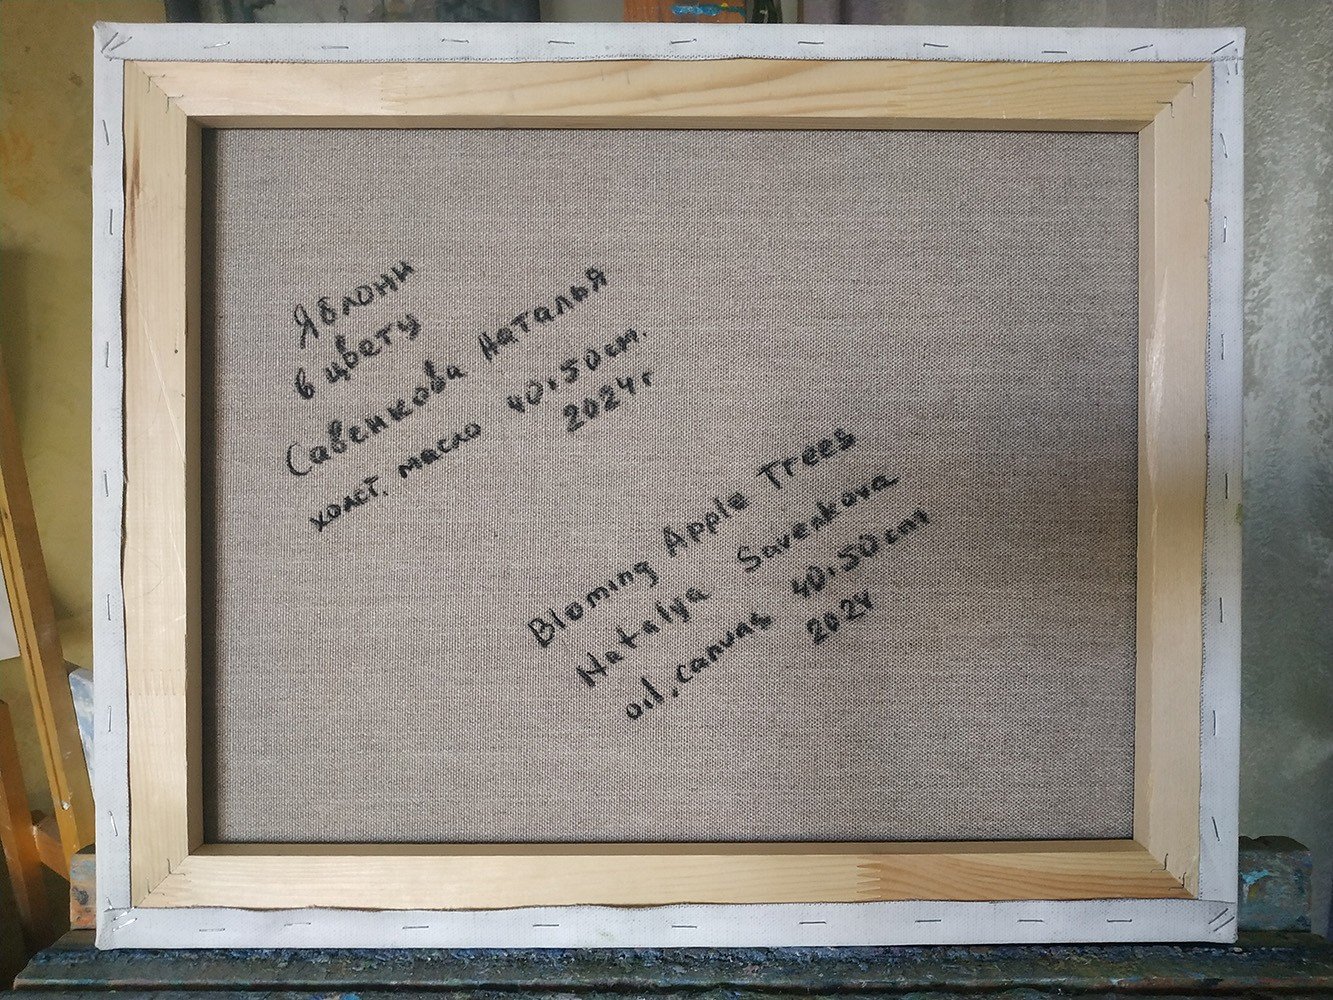 Яблони
в цвету
Савенкова Наталья
холст, масло 40×50см.
2024г
Bloming Apple Trees
Natalya Savenkova
oil, canvas 40×50cm
2024